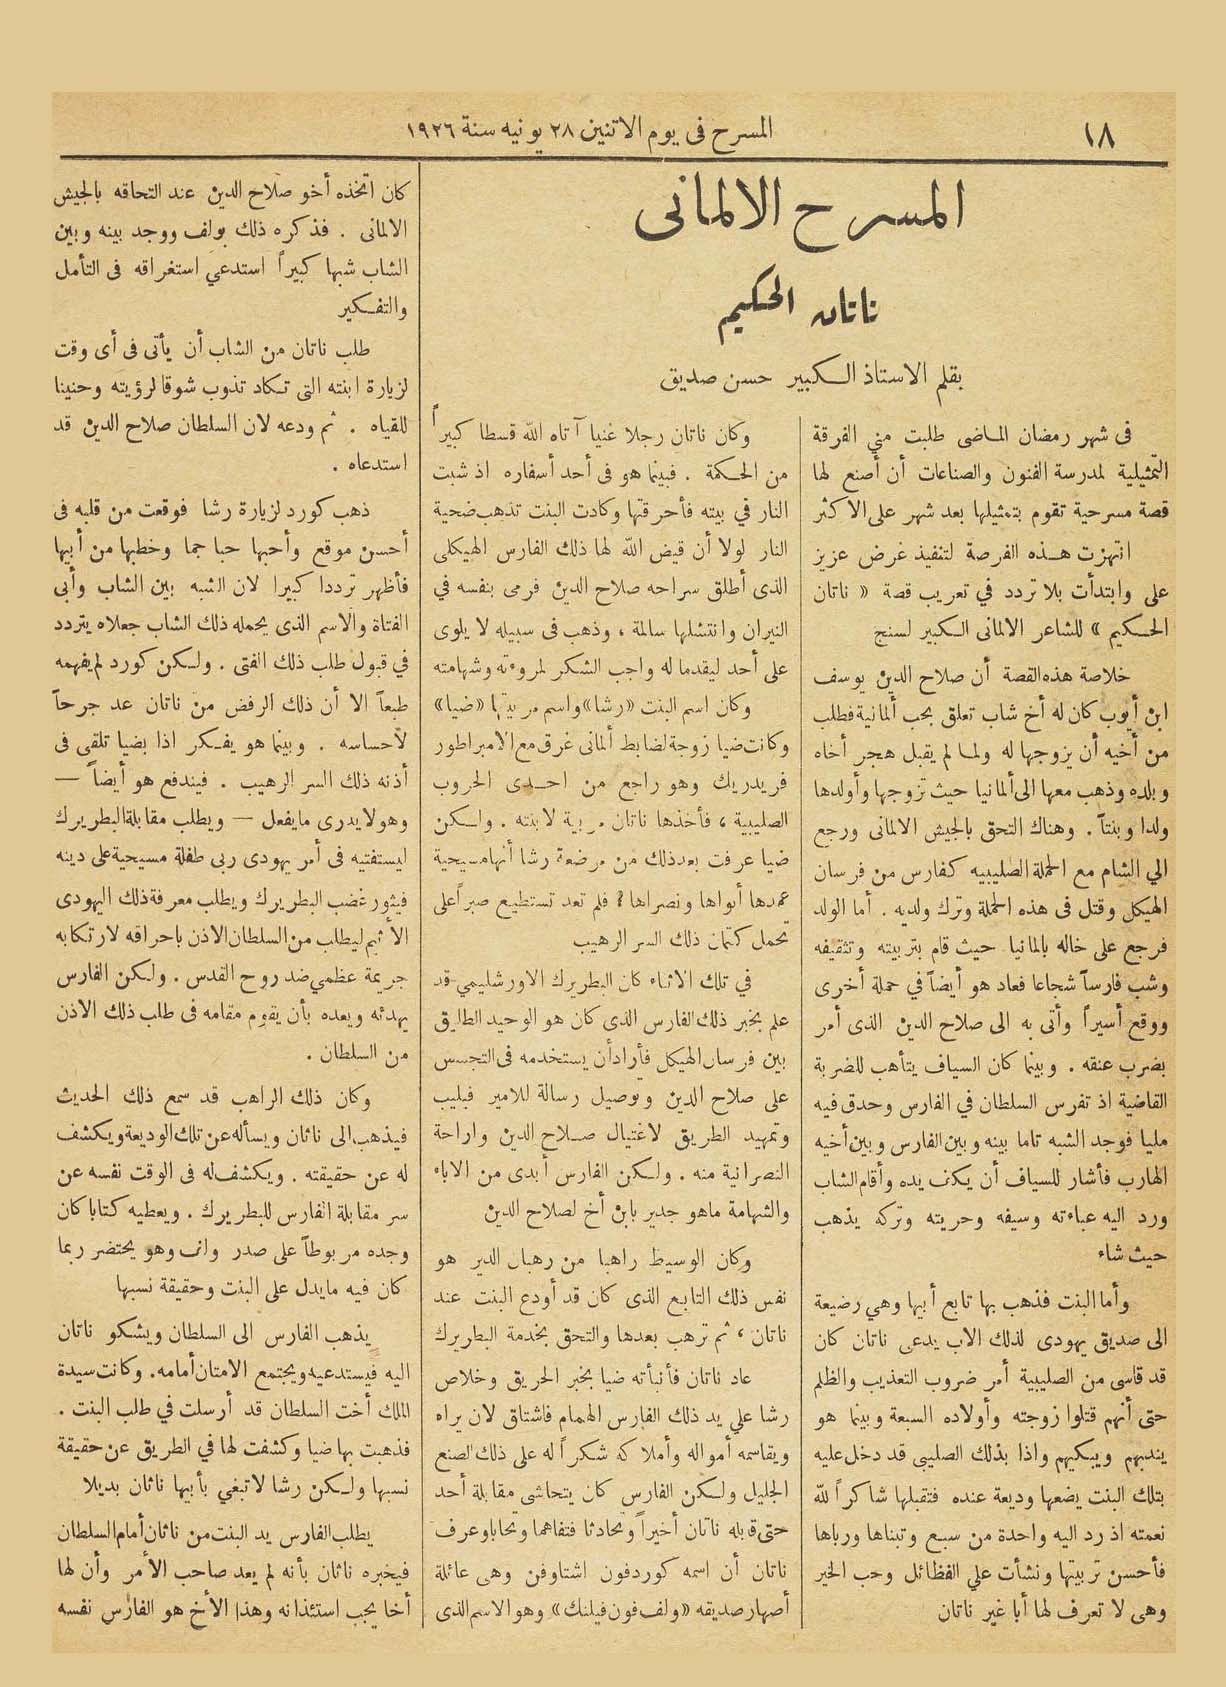 ١٨
المسرح فى يوم الاتنين ٢٨ يونيه سنة ١٩٢٦
المسرح الالمانى
ناتان الحكيم
بقلم الاستاذ الكبير حسن صديق
فى شهر رمضان الماضى طلبت منى الفرقة
التمثيلية لمدرسة الفنون والصناعات أن أصنع لها
قصة مسرحية تقوم بتمثيلها بعد شهر على الاكثر
انتهزت هذه الفرصة لتنفيذ غرض عزيز
على وابتدأت بلا تردد في تعريب قصة « ناتان
الحكيم » للشاعر الالمانى الكبير لسنج
خلاصة هذه القصة أن صلاح الدين يوسف
ابن أيوب كان له أخ شاب تعلق بحب ألمانية فطلب
من أخيه أن يزوجها له ولما لم يقبل هجر أخاه
وبلده وذهب معها الى ألمانيا حيث تزوجها وأولدها
ولدا وبنتاً . وهناك التحق بالجيش الالمانى ورجع
الي الشام مع الحملة الصليبيه كفارس من فرسان
الهيكل وقتل فى هذه الحملة وترك ولديه . أما الولد
فرجع على خاله بالمانيا حيث قام بتربيته وتثقيفه
وشب فارساً شجاعا فعاد هو أيضاً في حملة أخرى
ووقع أسيراً وأتى به الى صلاح الدين الذى أمر
بضرب عنقه . وبينما كان السياف يتأهب للضربة
القاضية اذ تفرس السلطان في الفارس وحدق فيه
مليا فوجد الشبه تاما بينه وبين الفارس وبين أخيه
الهارب فأشار للسياف أن يكف يده وأقام الشاب
ورد اليه عباءته وسيفه وحريته وتركه يذهب
حيث شاء
وأما البنت فذهب بها تابع أبيها وهي رضيعة
الى صديق يهودى لذلك الاب يدعى ناتان كان
قد قاسى من الصليبية أمر ضروب التعذيب والظلم
حتى أنهم قتلوا زوجته وأولاده السبعة وبينما هو
يندبهم ويبكيهم واذا بذلك الصليبى قد دخل عليه
بتلك البنت يضعها وديعة عنده فتقبلها شاكراً لله
نعمته اذ رد اليه واحدة من سبع وتبناها ورباها
فأحسن تربيتها ونشأت علي الفظائل وحب الخير
وهى لا تعرف لها أبا غير ناتان
وكان ناتان رجلا غنيا آتاه الله قسطا كبيراً
من الحكمة . فبينما هو فى أحد أسفاره اذ شبت
النار في بيته فأحرقتها وكادت البنت تذهب ضحية
النار لولا أن قيض الله لها ذلك الفارس الهيكلى
الذى أطلق سراحه صلاح الدين فرمى بنفسه في
النيران وانتشلها سالمة ، وذهب فى سبيله لا يلوى
على أحد ليقدما له واجب الشكر لمروءته وشهامته
وكان اسم البنت «رشا» واسم مربيتها «ضيا»
وكانت ضيا زوجة لضابط ألمانى غرق مع الامبراطور
فريدريك وهو راجع من احدى الحروب
الصليبية ، فأخذها ناتان مربية لابنته . ولكن
ضيا عرفت بعد ذلك من مرضعة رشا أنها مسيحية
عمدها أبواها ونصراها ؟ فلم تعد تستطيع صبراً على
تحمل كتمان ذلك السر الرهيب
في تلك الاثناء كان البطريرك الاورشليمي قد
علم بخبر ذلك الفارس الذى كان هو الوحيد الطليق
بين فرسان الهيكل فأراد أن يستخدمه فى التجسس
على صلاح الدين وتوصيل رسالة للامير فيليب
وتمهيد الطريق لاغتيال صلاح الدين واراحة
النصرانية منه . ولكن الفارس أبدى من الاباء
والشهامة ماهو جدير بابن أخ لصلاح الدين
وكان الوسيط راهبا من رهبان الدير هو
نفس ذلك التابع الذى كان قد أودع البنت عند
ناتان ، ثم ترهب بعدها والتحق بخدمة البطريرك
عاد ناتان فأنبأته ضيا بخبر الحريق وخلاص
رشا علي يد ذلك الفارس الهمام فاشتاق لان يراه
ويقاسمه أمواله وأملاكه شكراً له على ذلك الصنع
الجليل ولكن الفارس كان يتحاشى مقابلة أحد
حتى قابله ناتان أخيراً وتحادثا فتفاهما وتحابا وعرف
ناتان أن اسمه كوردفون اشتاوفن وهى عائلة
أصهار صديقه «ولف فون فيلنك» وهو الاسم الذى
كان اتخذه أخو صلاح الدين عند التحاقه بالجيش
الالمانى . فذكره ذلك بولف ووجد بينه وبين
الشاب شبها كبيراً استدعي استغراقه فى التأمل
والتفكير
طلب ناتان من الشاب أن يأتى فى أى وقت
لزيارة ابنته التى تكاد تذوب شوقا لرؤيته وحنينا
للقياه . ثم ودعه لان السلطان صلاح الدين قد
استدعاه .
ذهب كورد لزيارة رشا فوقعت من قلبه فى
أحسن موقع وأحبها حبا جما وخطبها من أبيها
فأظهر ترددا كبيرا لان الشبه بين الشاب وأبى
الفتاة والاسم الذى يحمله ذلك الشاب جعلاه يتردد
في قبول طلب ذلك الفتى . ولكن كورد لم يفهمه
طبعاً الا أن ذلك الرفض من ناتان عد جرحاً
لأحساسه . وبينما هو يفكر اذا بضيا تلقى فى
أذنه ذلك السر الرهيب . فيندفع هو أيضاً —
وهو لا يدرى ما يفعل — ويطلب مقابلة البطريرك
ليستفتيه فى أمر يهودى ربى طفلة مسيحية على دينه
فيثور غضب البطريرك ويطلب معرفة ذلك اليهودى
الأثيم ليطلب من السلطان الاذن باحراقه لارتكابه
جريمة عظمي ضد روح القدس . ولكن الفارس
يهدئه ويعده بأن يقوم مقامه فى طلب ذلك الاذن
من السلطان .
وكان ذلك الراهب قد سمع ذلك الحديث
فيذهب الى ناثان ويسأله عن تلك الوديعة ويكشف
له عن حقيقته . ويكشف له فى الوقت نفسه عن
سر مقابلة الفارس للبطريرك . ويعطيه كتابا كان
وجده مربوطاً على صدر وهو يحتضر ربما
كان فيه ما يدل على البنت وحقيقة نسبها
يذهب الفارس الى السلطان ويشكو ناتان
اليه فيستدعيه ويجتمع الامتان أمامه. وكانت سيدة
الملك أخت السلطان قد أرسلت في طلب البنت .
فذهبت بها ضيا وكشفت لها في الطريق عن حقيقة
نسبها ولكن رشا لا تبغي بأبيها ناثان بديلا
يطلب الفارس يد البنت من ناثان أمام السلطان
فيخبره ناثان بأنه لم يعد صاحب الأمر وأن لها
أخا يجب استئذانه وهذا الأخ هو الفارس نفسه